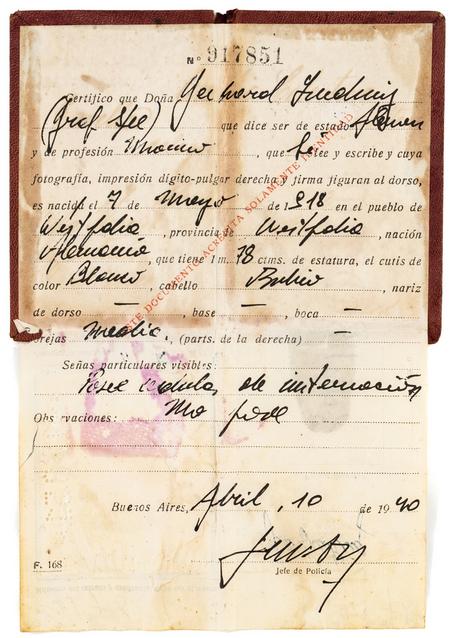 Nº 917851
Certifico que Doña Gerhard
(Graf Spee) que dice ser de estado
y de profesión Marino, que lee y escribe y cuya
fotografía, impresión dígito-pulgar derecha y firma figuran al dorso,
es nacida el 7 de Mayo de 1918 en el pueblo de
Westfalia, provincia de Westfalia, nación
Alemania, que tiene 1 m. 78 ctms. de estatura, el cutis de
color Blanco, cabello Rubio, nariz
de dorso —, base —, boca —
orejas Media, (parts. de la derecha) —
Señas particulares visibles:
Posee cédula de internación
Observaciones: No
Buenos Aires, Abril, 10 de 1940
Jefe de Policía
F. 168
ESTE DOCUMENTO ACREDITA SOLAMENTE IDENTIDAD